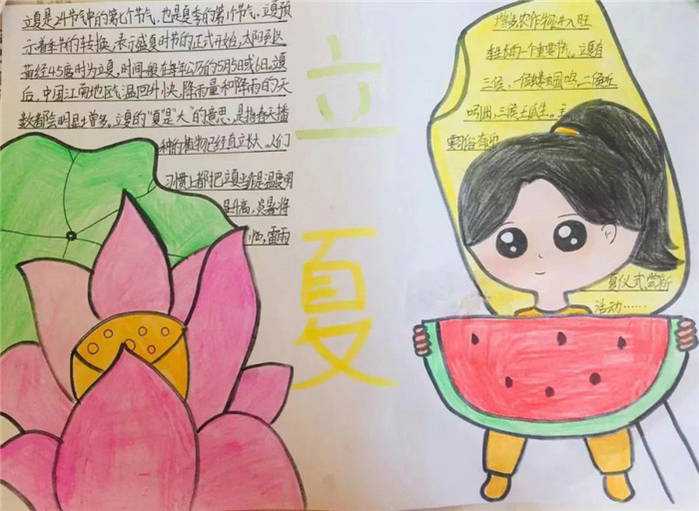 立夏是24节气中的第七个节气，也是夏季的第1个节气，立夏预
示着季节的转换，表示盛夏时节的正式开始，太阳到达
黄经45度时为立夏，时间一般在每年公历的5月5日或6日。立夏
后，中国江南地区气温回升快，降雨量和降雨的天
数都会明显土曾多。立夏的“夏是“大”的意思，是指春天播
种的植物已经直立长大，人们
习惯上都把立夏当作是温度明
显升高，炎暑将
临，雷雨
立
夏
增多农作物进入旺
季生长的一个重要节。立夏有
三候，一候蝼蝈鸣，二候蚯
蚓出，三候王瓜生。
夏仪式尝新
活动……